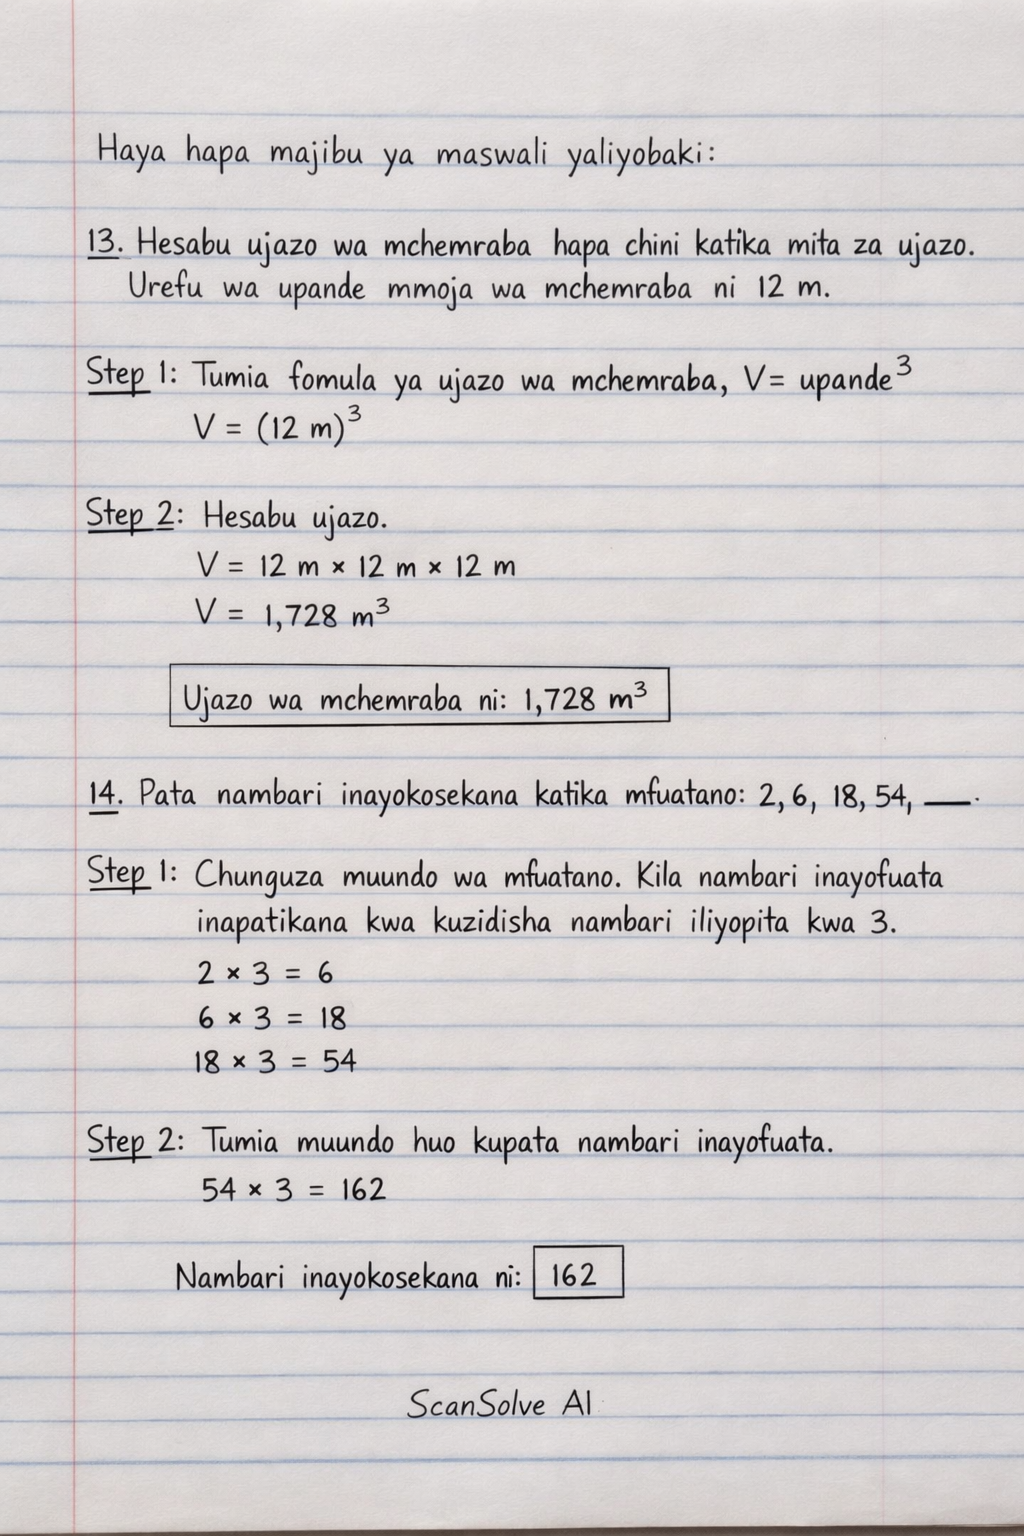 Haya hapa majibu ya maswali yaliyobaki:
13. Hesabu ujazo wa mchemraba hapa chini katika mita za ujazo.
Urefu wa upande mmoja wa mchemraba ni 12 m.
Step 1: Tumia fomula ya ujazo wa mchemraba, V = upande³
V = (12 m)³
Step 2: Hesabu ujazo.
V = 12 m × 12 m × 12 m
V = 1,728 m³
Ujazo wa mchemraba ni: 1,728 m³
14. Pata nambari inayokosekana katika mfuatano: 2, 6, 18, 54, __.
Step 1: Chunguza muundo wa mfuatano. Kila nambari inayofuata
inapatikana kwa kuzidisha nambari iliyopita kwa 3.
2 × 3 = 6
6 × 3 = 18
18 × 3 = 54
Step 2: Tumia muundo huo kupata nambari inayofuata.
54 × 3 = 162
Nambari inayokosekana ni: 162
ScanSolve AI